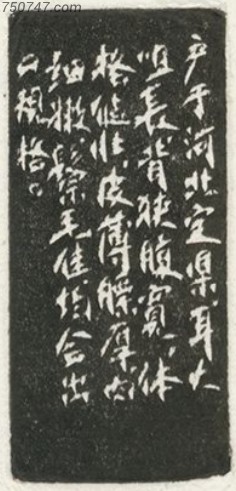 750747.com
产于河北定县,耳大
咀长,背狭腹宽,体
格健壮,皮薄膘厚,肉
细嫩,鬃毛佳,均合出
口规格。